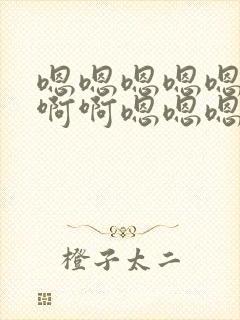 嗯嗯嗯嗯嗯
啊啊嗯嗯嗯
橙子太二